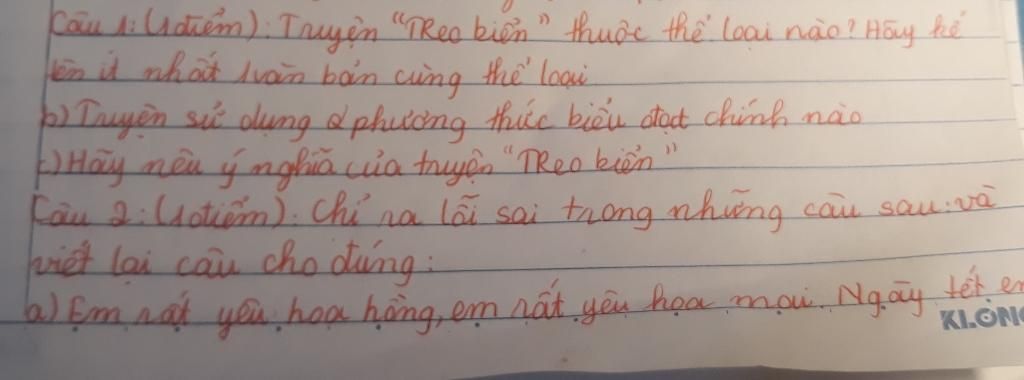 Câu 1: (1điểm): Truyện "TReo biển" thuộc thể loại nào? Hãy kể
tên ít nhất 1 văn bản cùng thể loại
b) Truyện sử dụng phương thức biểu đạt chính nào
c) Hãy nêu ý nghĩa của truyện "TReo biển"
Câu 2: (1điểm): Chỉ ra lỗi sai trong những câu sau và
viết lại câu cho đúng:
a) Em rất yêu hoa hồng, em rất yêu hoa mai. Ngày tết em
KLONG